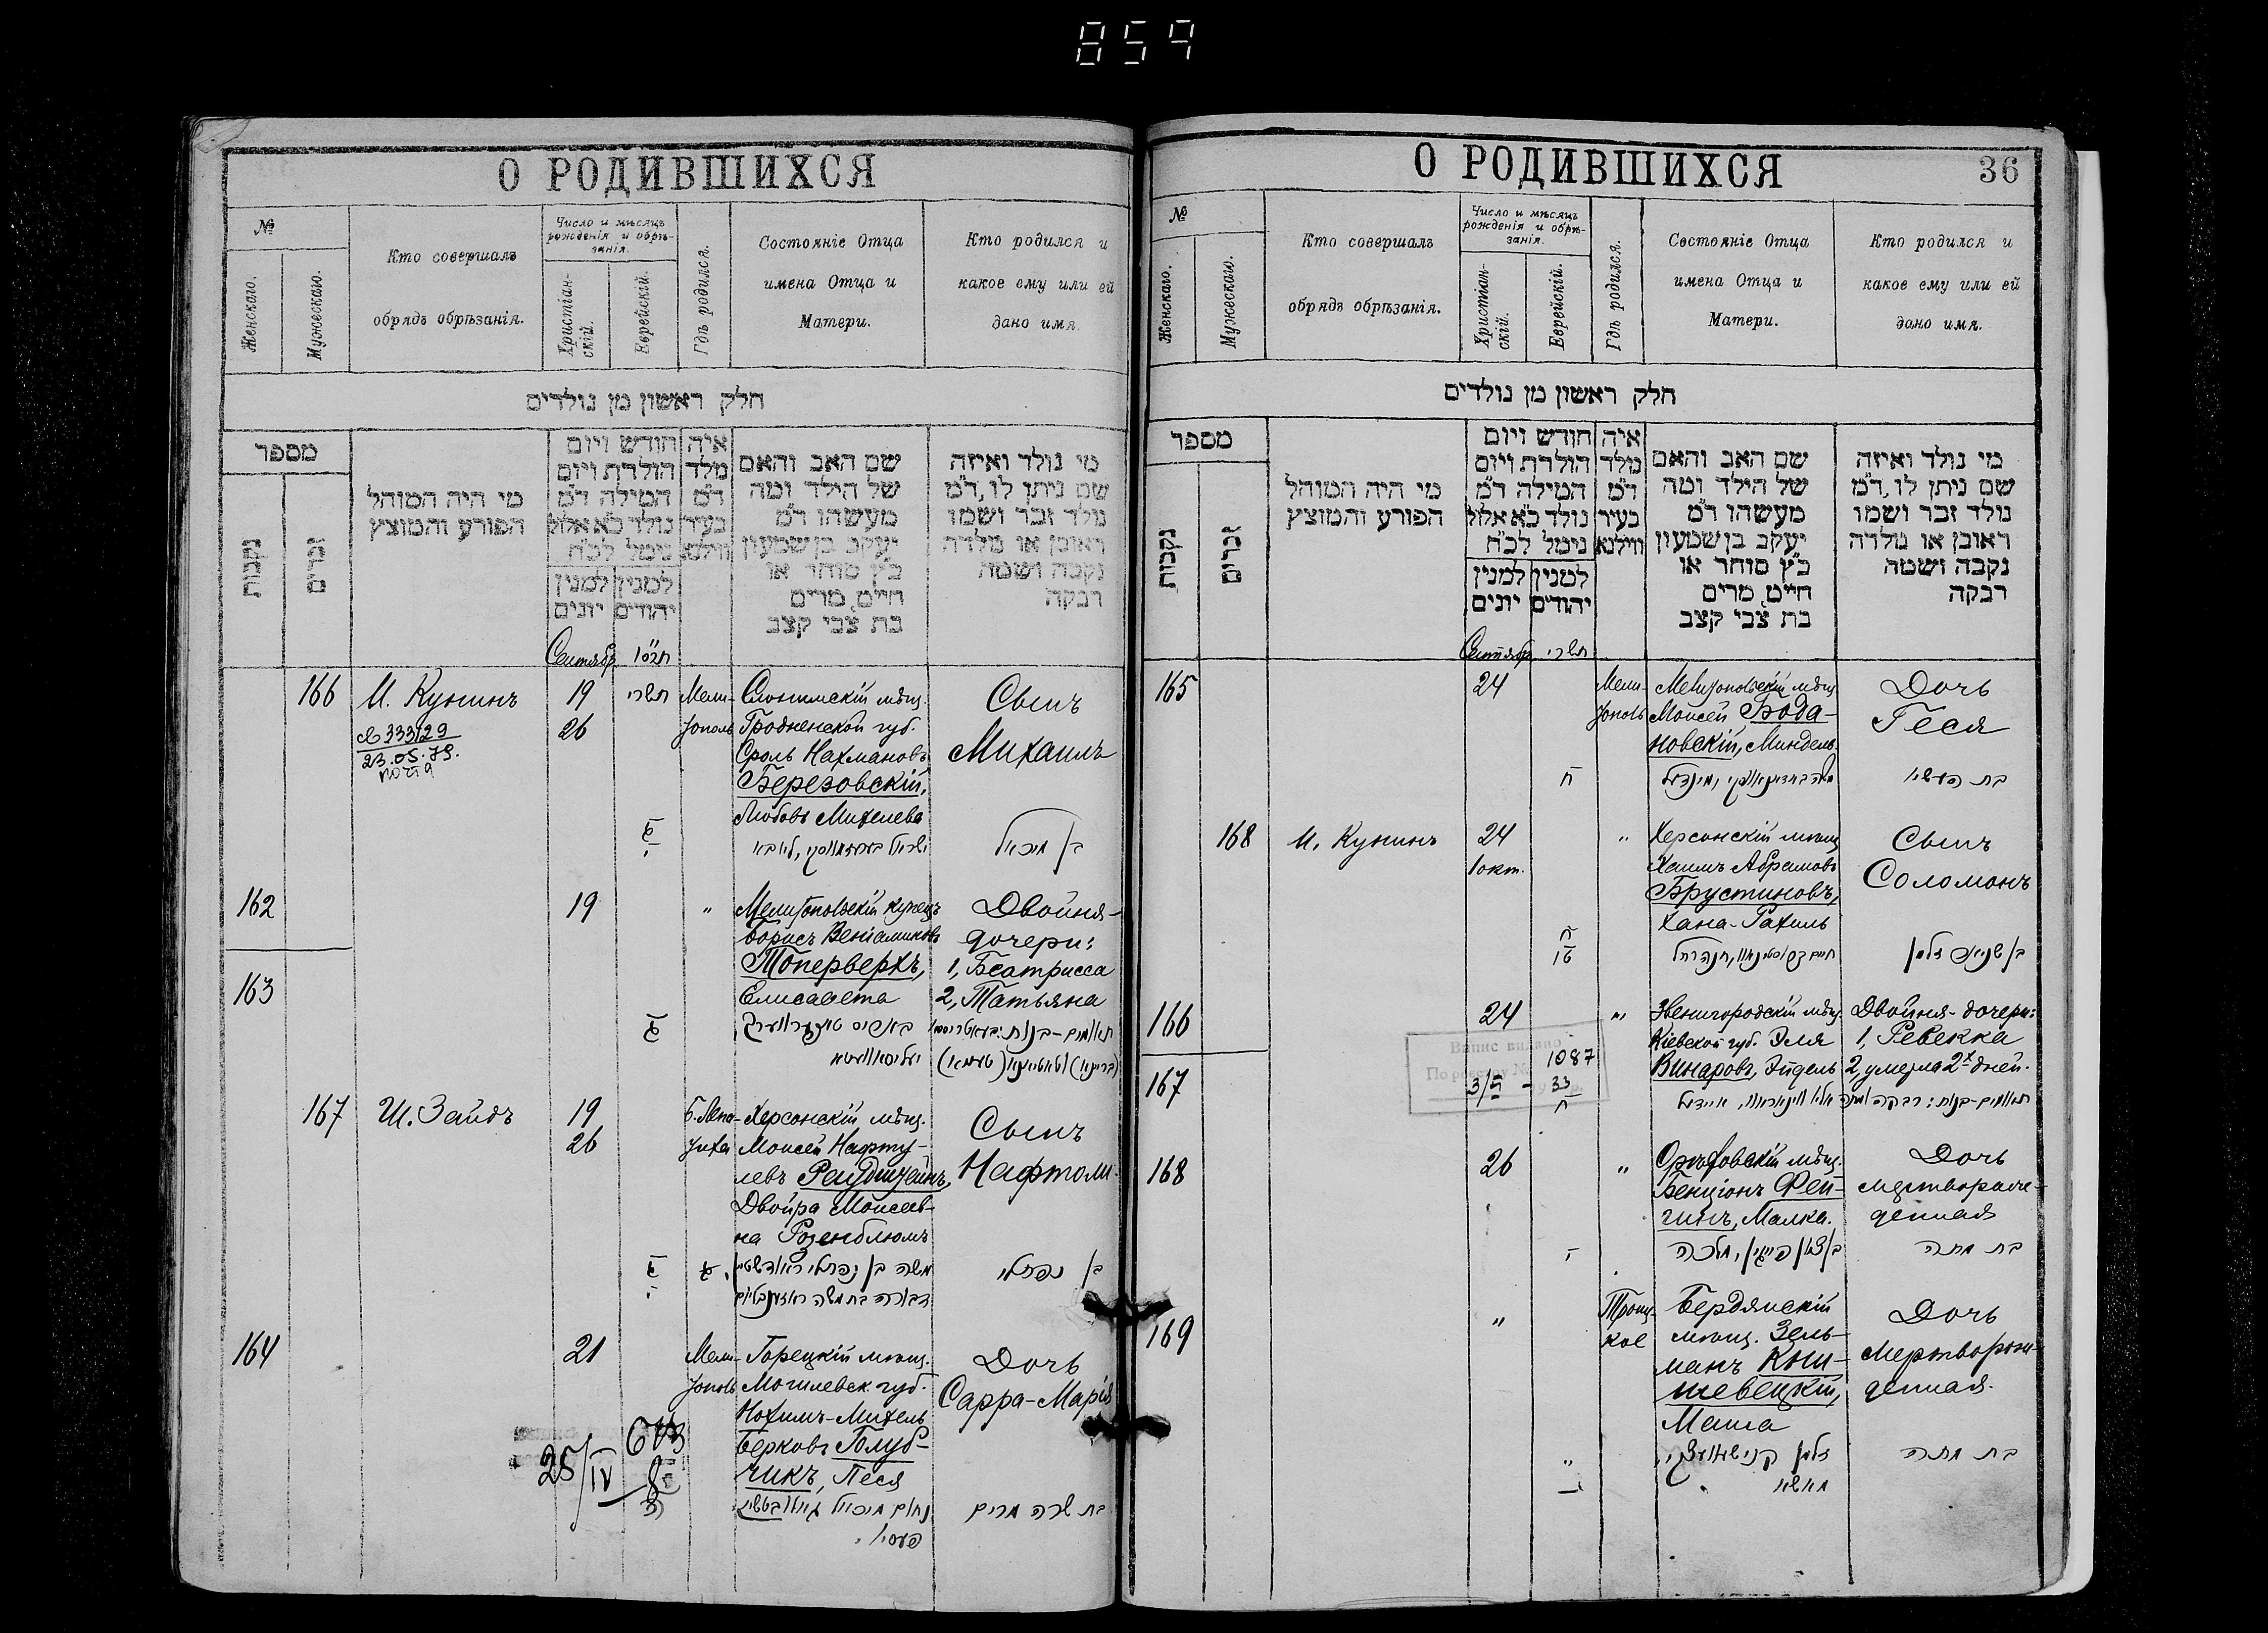 859
О РОДИВШИХСЯ
№
Женскаго.
Мужескаго.
Кто совершалъ
обрядъ обрѣзанія.
Число и мѣсяцъ
рожденія и обрѣ-
занія.
Христіан-
скій.
Еврейскій.
Гдѣ родился.
Состояніе Отца
имена Отца и
Матери.
Кто родился и
какое ему или ей
дано имя.
חלק ראשון מן נולדים
מספר
נקבות
זכרים
מי היה המוהל
הפורע והמוצץ
חודש ויום
הולדת ויום
המילה ד״מ
נולד כ״א אלול
נימל לכ״ח
למנין יהודים
למנין יונים
איה
מלד
ד״מ
בעיר
ווילנא
שם האב והאם
של הילד ומה
מעשהו ד״מ
יעקב בן שמעון
כ״ץ סוחר או
חייט, מרים
בת צבי קצב
מי נולד ואיזה
שם ניתן לו, ד״מ
נולד זכר ושמו
ראובן או נולדה
נקבה ושמה
רבקה
Сентябр.
166
И. Кунинъ
19
26
תשרי
Мели-
тополь
Слонимскій мѣщ.
Гродненской губ.
Сроль Нахмановъ
Березовскій,
Любовь Михелева
Сынъ
Михаилъ
333129
23.05.79.
почта
בן מיכאל
162
163
19
"
Мелитопольскій купецъ
Борисъ Веніаминовъ
Топерверхъ,
Елисавета
Двойня-
дочери:
1, Беатрисса
2, Татьяна
167
Ш. Зайдъ
19
26
Б. Лепа-
тиха
Херсонскій мѣщ.
Моисей Нафту-
левъ Раудштейнъ,
Двойра Моисеев-
на Розенблюмъ
Сынъ
Нафтоли
משה בן נפתלי ראודשטיין
דבורה בת משה ראזענבליום
בן נפתלי
164
21
Мели-
тополь
Горецкій мѣщ.
Могилевск. губ.
Нохимъ-Михель
Берковъ Голуб-
чикъ, Песя
Дочь
Сарра-Марія
25/IV
נחום מיכאל גאלובטשיק
פעסיא
בת שרה מרים
О РОДИВШИХСЯ
36
№
Женскаго.
Мужескаго.
Кто совершалъ
обрядъ обрѣзанія.
Число и мѣсяцъ
рожденія и обрѣ-
занія.
Христіан-
скій.
Еврейскій.
Гдѣ родился.
Состояніе Отца
имена Отца и
Матери.
Кто родился и
какое ему или ей
дано имя.
חלק ראשון מן נולדים
מספר
נקבות
זכרים
מי היה המוהל
הפורע והמוצץ
חודש ויום
הולדת ויום
המילה ד״מ
נולד כ״א אלול
נימל לכ״ח
למנין יהודים
למנין יונים
איה
מלד
ד״מ
בעיר
ווילנא
שם האב והאם
של הילד ומה
מעשהו ד״מ
יעקב בן שמעון
כ״ץ סוחר או
חייט, מרים
בת צבי קצב
מי נולד ואיזה
שם ניתן לו, ד״מ
נולד זכר ושמו
ראובן או נולדה
נקבה ושמה
רבקה
Сентябр.
תשרי
165
24
Мели-
тополь
Мелитопольскій мѣщ.
Моисей Бода-
новскій, Миндель
Дочь
Геся
ח
בת העשיא
168
И. Кунинъ
24
1 окт.
"
Херсонскій мѣщ.
Хаимъ Абрамовъ
Брустиновъ,
Хана-Рахиль
Сынъ
Соломонъ
ח
טו
חיים ברוסטינאוו, חנה רחל
בן שניאור זלמן
166
167
24
"
Звенигородскій мѣщ.
Кіевской губ. Эля
Винаровъ, Эйдель
Двойня-дочери:
1, Ревекка
2, умерла 2х дней.
Випис видано
По реєстру №
1087
ח
168
26
"
Орѣховскій мѣщ.
Бенціонъ Фей-
гинъ, Малка.
Дочь
мертворож-
денная
י
בן ציון פייגין, מלכה
בת מתה
169
"
Троиц-
кое
Бердянскій
мѣщ. Зель-
манъ Кни-
шевецкій,
Маша
Дочь
мертворож-
денная.
"
זלמן קנישעוועצקי,
מאשא
בת מתה